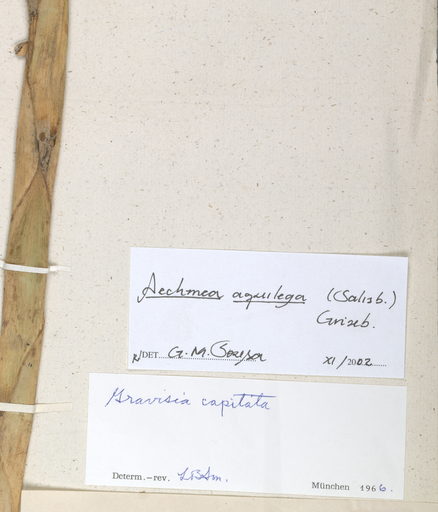 Aechmea aquilega (Salisb.)
Griseb.
DET. G. M. Sousa XI/2002
Gravisia capitata
Determ.-rev. LBSm.
München 1966.